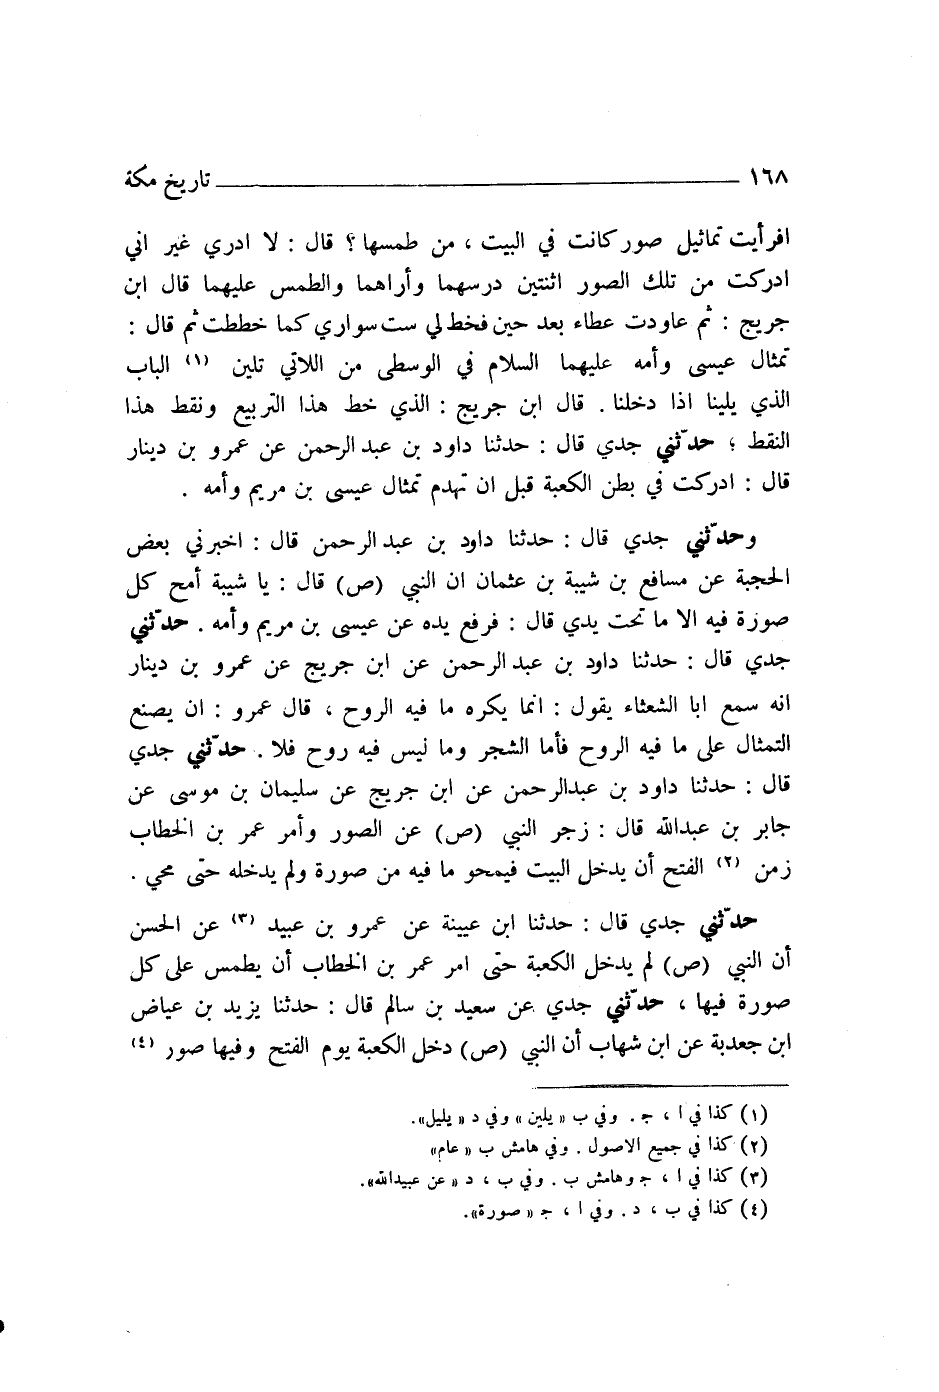 ١٦٨ تاريخ مكة
افرأيت تماثيل صور كانت في البيت ، من طمسها ؟ قال : لا ادري غير اني
ادركت من تلك الصور اثنتين درسهما وأراهما والطمس عليهما قال ابن
جريج : ثم عاودت عطاء بعد حين فخط لي ست سواري كما خططت ثم قال :
تمثال عيسى وأمه عليهما السلام في الوسطى من اللاتي تلين (١) الباب
الذي يلينا اذا دخلنا . قال ابن جريج : الذي خط هذا التربيع ونقط هذا
النقط ؛ حدّثني جدي قال : حدثنا داود بن عبد الرحمن عن عمرو بن دينار
قال : ادركت في بطن الكعبة قبل ان تهدم تمثال عيسى بن مريم وأمه .
وحدّثني جدي قال : حدثنا داود بن عبد الرحمن قال : اخبرني بعض
الحجبة عن مسافع بن شيبة بن عثمان ان النبي (ص) قال : يا شيبة أمح كل
صورة فيه الا ما تحت يدي قال : فرفع يده عن عيسى بن مريم وأمه . حدّثني
جدي قال : حدثنا داود بن عبد الرحمن عن ابن جريج عن عمرو بن دينار
انه سمع ابا الشعثاء يقول : انما يكره ما فيه الروح ، قال عمرو : ان يصنع
التمثال على ما فيه الروح فأما الشجر وما ليس فيه روح فلا . حدّثني جدي
قال : حدثنا داود بن عبدالرحمن عن ابن جريج عن سليمان بن موسى عن
جابر بن عبدالله قال : زجر النبي (ص) عن الصور وأمر عمر بن الخطاب
زمن (٢) الفتح أن يدخل البيت فيمحو ما فيه من صورة ولم يدخله حتى محي .
حدّثني جدي قال : حدثنا ابن عيينة عن عمرو بن عبيد (٣) عن الحسن
أن النبي (ص) لم يدخل الكعبة حتى امر عمر بن الخطاب أن يطمس على كل
صورة فيها ، حدّثني جدي عن سعيد بن سالم قال : حدثنا يزيد بن عياض
ابن جعدبة عن ابن شهاب أن النبي (ص) دخل الكعبة يوم الفتح وفيها صور (٤)
(١) كذا في ا ، ج . وفي ب « يلين » وفي د « يليل».
(٢) كذا في جميع الاصول . وفي هامش ب « عام»
(٣) كذا في ا ، ج وهامش ب . وفي ب ، د « عن عبيدالله».
(٤) كذا في ب ، د . وفي ا ، ج « صورة».